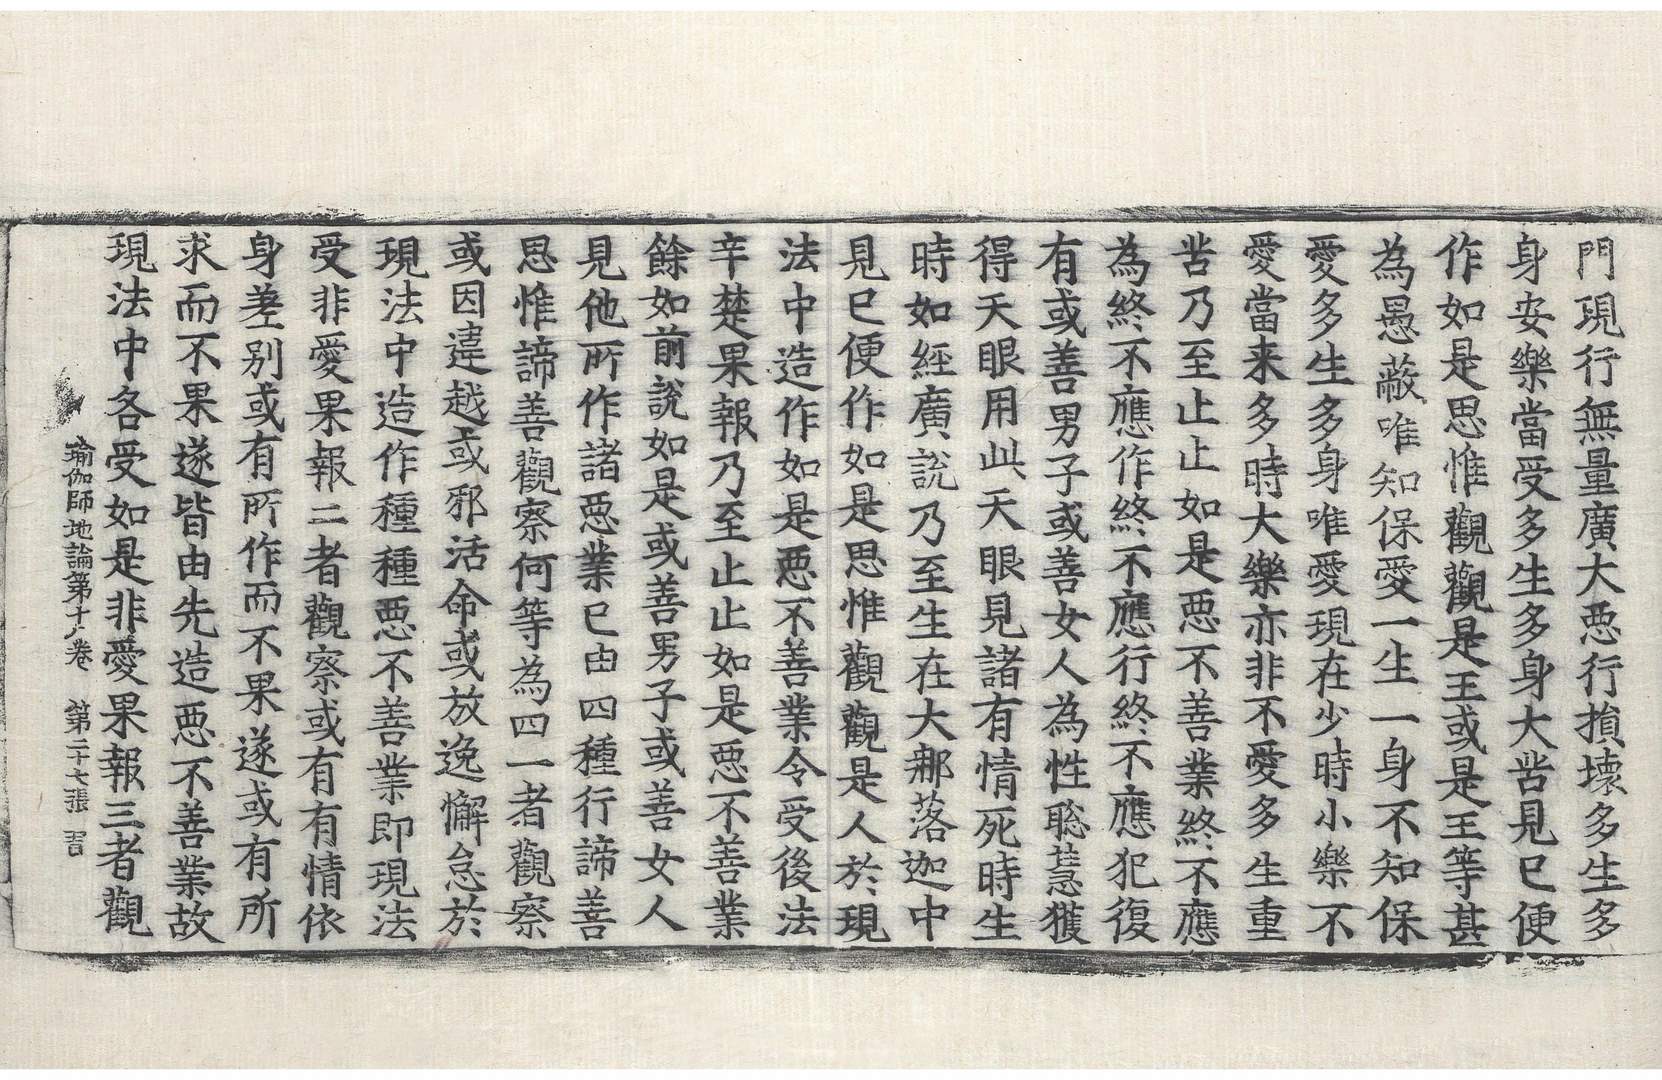 門現行無量廣大惡行損壞多生多
身安樂當受多生多身大苦見已便
作如是思惟觀觀是王或是王等甚
為愚蔽唯知保愛一生一身不知保
愛多生多身唯愛現在少時小樂不
愛當来多時大樂亦非不愛多生重
苦乃至止止如是惡不善業終不應
為終不應作終不應行終不應犯復
有或善男子或善女人為性聡慧獲
得天眼用此天眼見諸有情死時生
時如經廣說乃至生在大那落迦中
見已便作如是思惟觀觀是人於現
法中造作如是惡不善業令受後法
辛楚果報乃至止止如是惡不善業
餘如前說如是或善男子或善女人
見他所作諸惡業已由四種行諦善
思惟諦善觀察何等為四一者觀察
或因違越或邪活命或放逸懈怠於
現法中造作種種惡不善業即現法
受非愛果報二者觀察或有有情依
身差別或有所作而不果遂或有所
求而不果遂皆由先造惡不善業故
瑜伽師地論第十八卷　第二十七張　習
現法中各受如是非愛果報三者觀